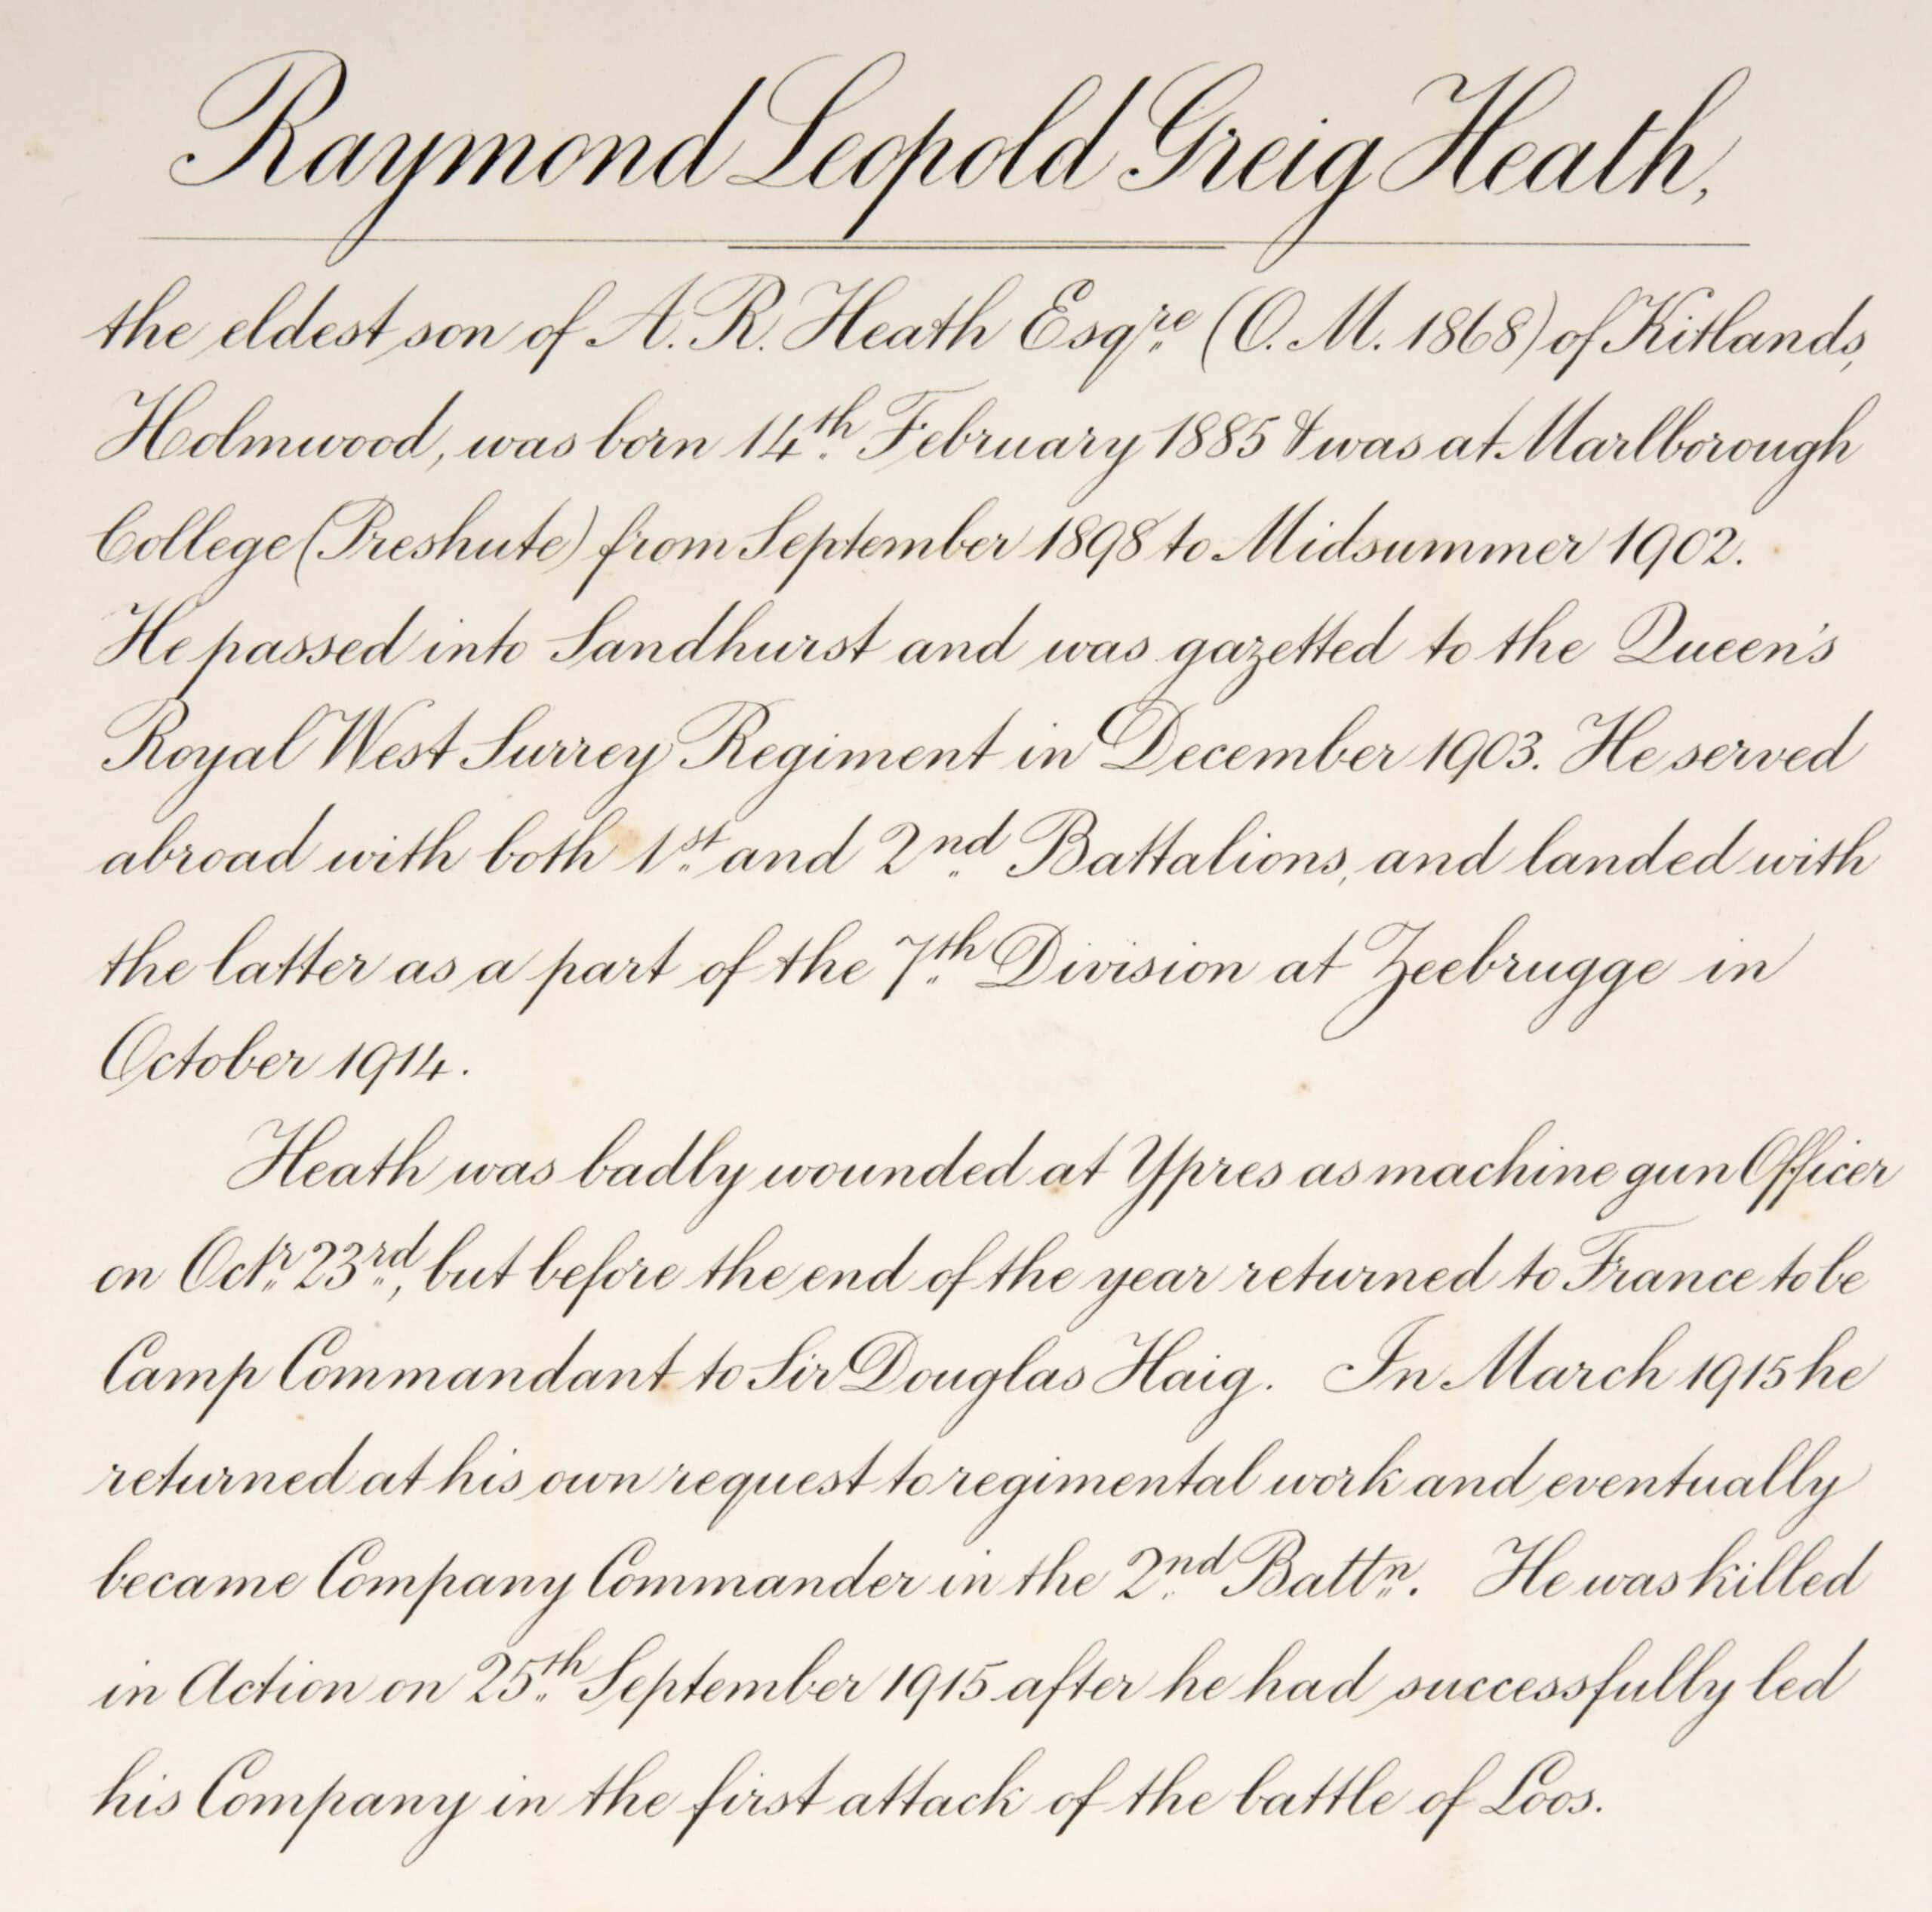 Raymond Leopold Greig Heath,
the eldest son of A. R. Heath Esqre (O. M. 1868) of Kitlands,
Holmwood, was born 14th February 1885 & was at Marlborough
College (Preshute) from September 1898 to Midsummer 1902.
He passed into Sandhurst and was gazetted to the Queen's
Royal West Surrey Regiment in December 1903. He served
abroad with both 1st and 2nd Battalions, and landed with
the latter as a part of the 7th Division at Zeebrugge in
October 1914.
Heath was badly wounded at Ypres as machine gun Officer
on Octr 23rd, but before the end of the year returned to France to be
Camp Commandant to Sir Douglas Haig. In March 1915 he
returned at his own request to regimental work and eventually
became Company Commander in the 2nd Battn. He was killed
in Action on 25th September 1915 after he had successfully led
his Company in the first attack of the battle of Loos.